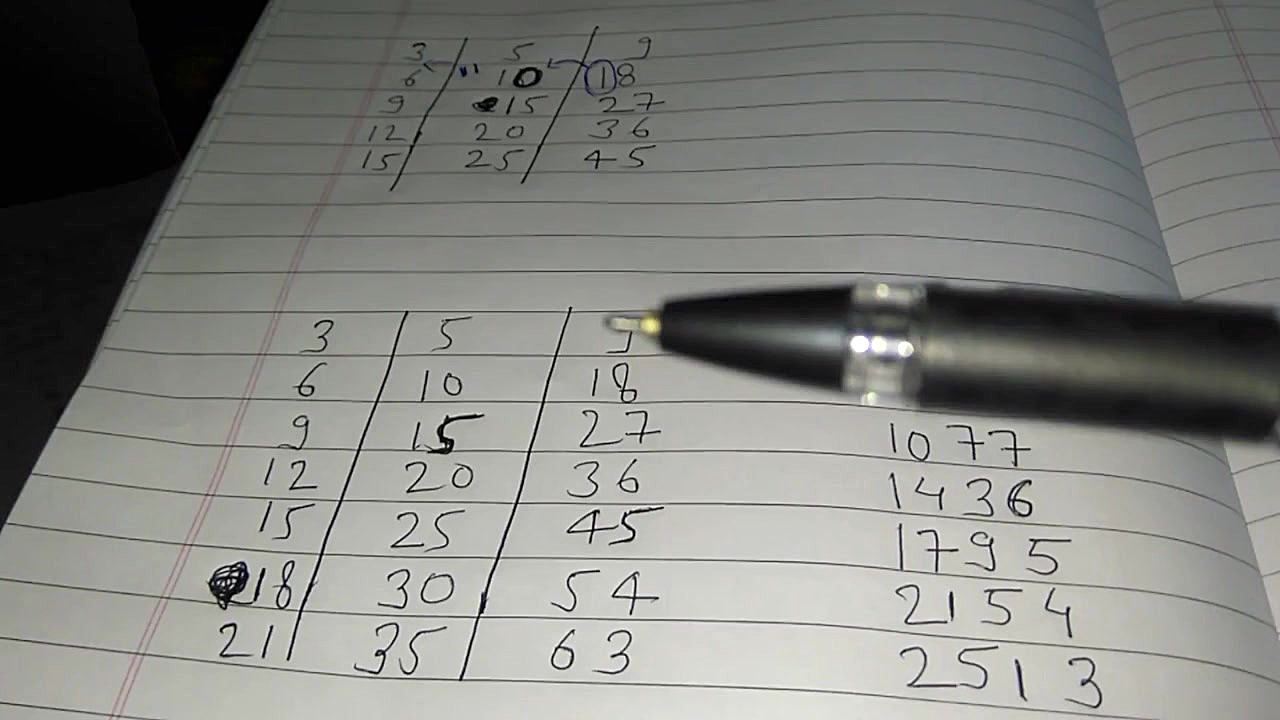 3 / 5 / 9
6 10 18
9 15 27
12 20 36
15 25 45
3 5 9
6 10 18
9 15 27 1077
12 20 36 1436
15 25 45 1795
18 30 54 2154
21 35 63 2513